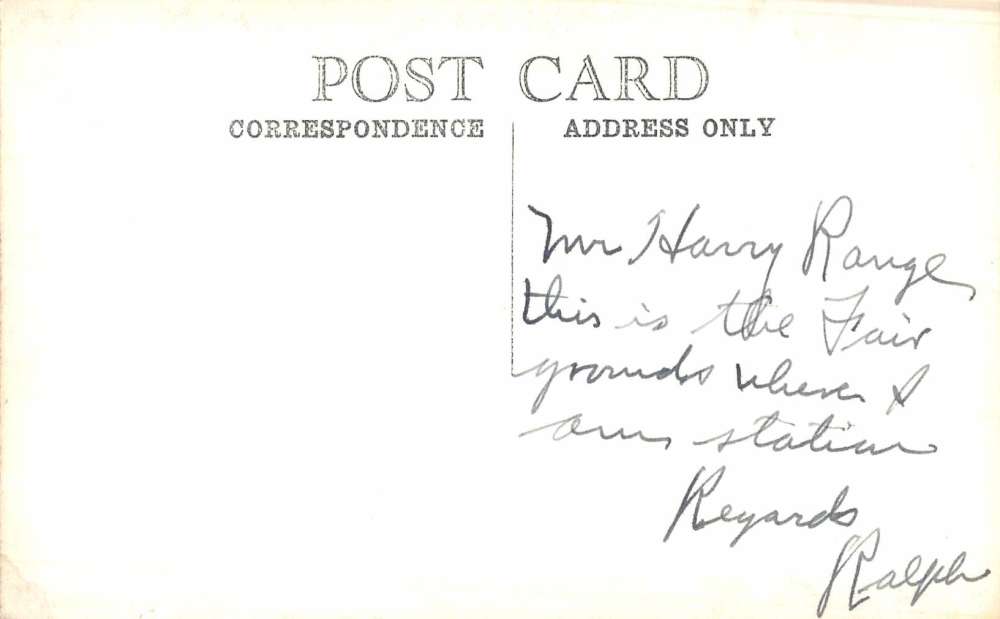 POST CARD
CORRESPONDENCE
ADDRESS ONLY
Mr Harry Range
this is the Fair
grounds where I
am station
Regards
Ralph